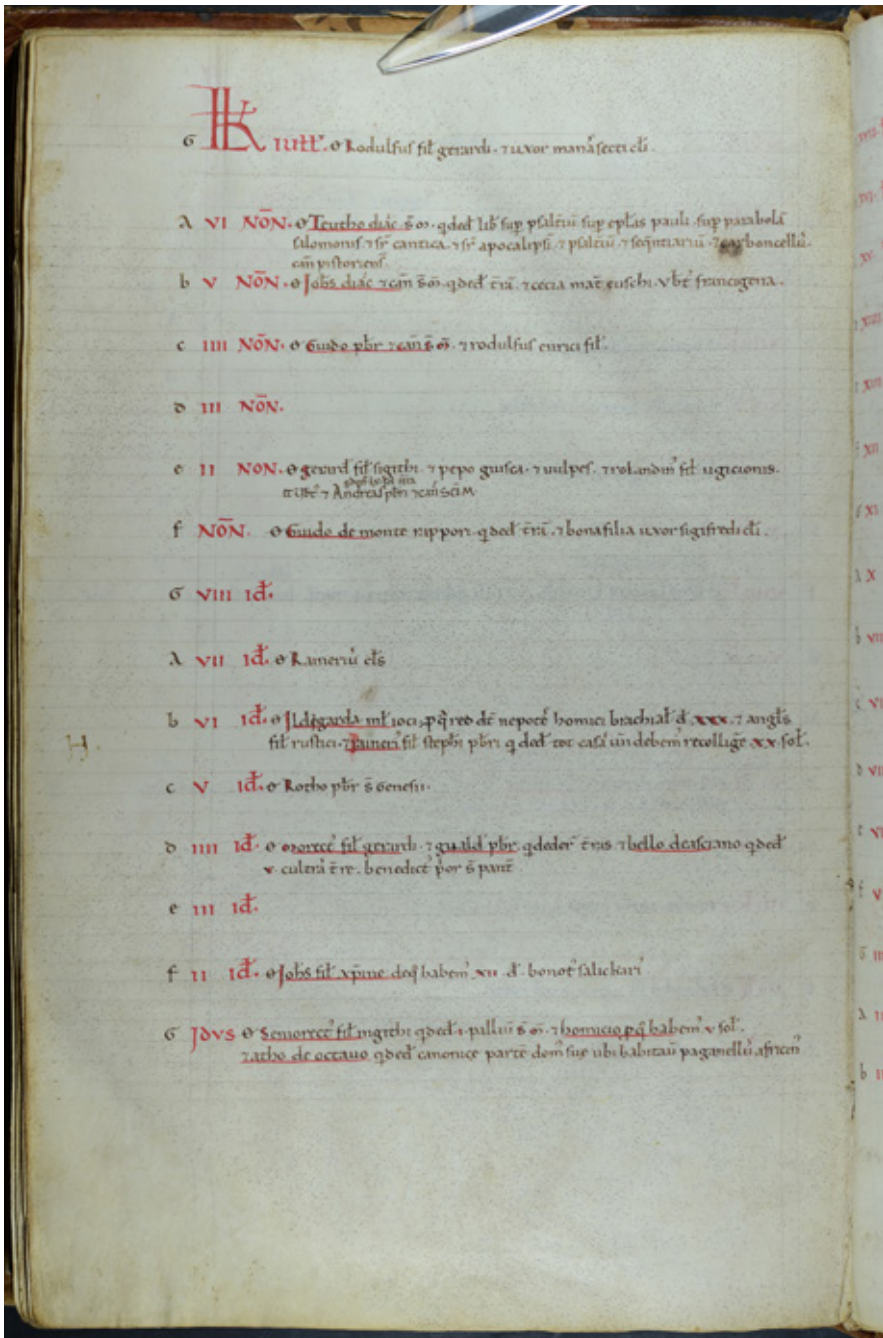 G KL IULII. O Rodulfus fil gerardi. ⁊ uxor manasecti cli.
A VI NON. O Teutho diac s̄ m̄. q ded lib sup psaltiū sup eplas pauli. sup parabola
salomonis ⁊ sr cantica. ⁊ sr apocalipsī. ⁊ psaltiū. ⁊ seqntiariū. ⁊ carboncellu.
can pistoriens.
b V NON. O Johs diac ⁊ can s̄ m̄. q ded t̄rā. ⁊ cecia mat̄ euschi. vbt francigena.
c IIII NON. O Guido pbr ⁊ can s̄ m̄. ⁊ rodulfus enrici fil.
d III NON.
e II NON. O gerard fil sigithi. ⁊ pepo guisca. ⁊ uulpes. ⁊ rolandin fil ugicionis.
⁊ Andreas pbr ⁊ can SCI M.
f NON. O Guido de monte nippori q ded t̄rā. ⁊ bonafilia uxor sigifredi cli.
G VIII Id.
A VII Id. O Raineriu cls
b VI Id. O Ildegarda ml ioci, p q red de nepote homici brachial d xxx. ⁊ angls
fil rustici. ⁊ Raineri fil stephi pbri q ded tot casā un debem recollige xx sol.
c V Id. O Rotho pbr s̄ Genesii.
d IIII Id. O morecc fil gerardi. ⁊ guald pbr. q deder t̄ras ⁊ bello de asciano q ded
v. cultra t̄re. benedict por s̄ pant
e III Id.
f II Id. O Johs fil xpine de q habem xii d. bonot salickari
G IDVS O Semorecc fil ingithi q ded i. palliū s̄ m̄. ⁊ homicio p q habem v sol.
⁊ atho de octauo q ded canonice parte dom sue ubi habitau paganellu africin
H.